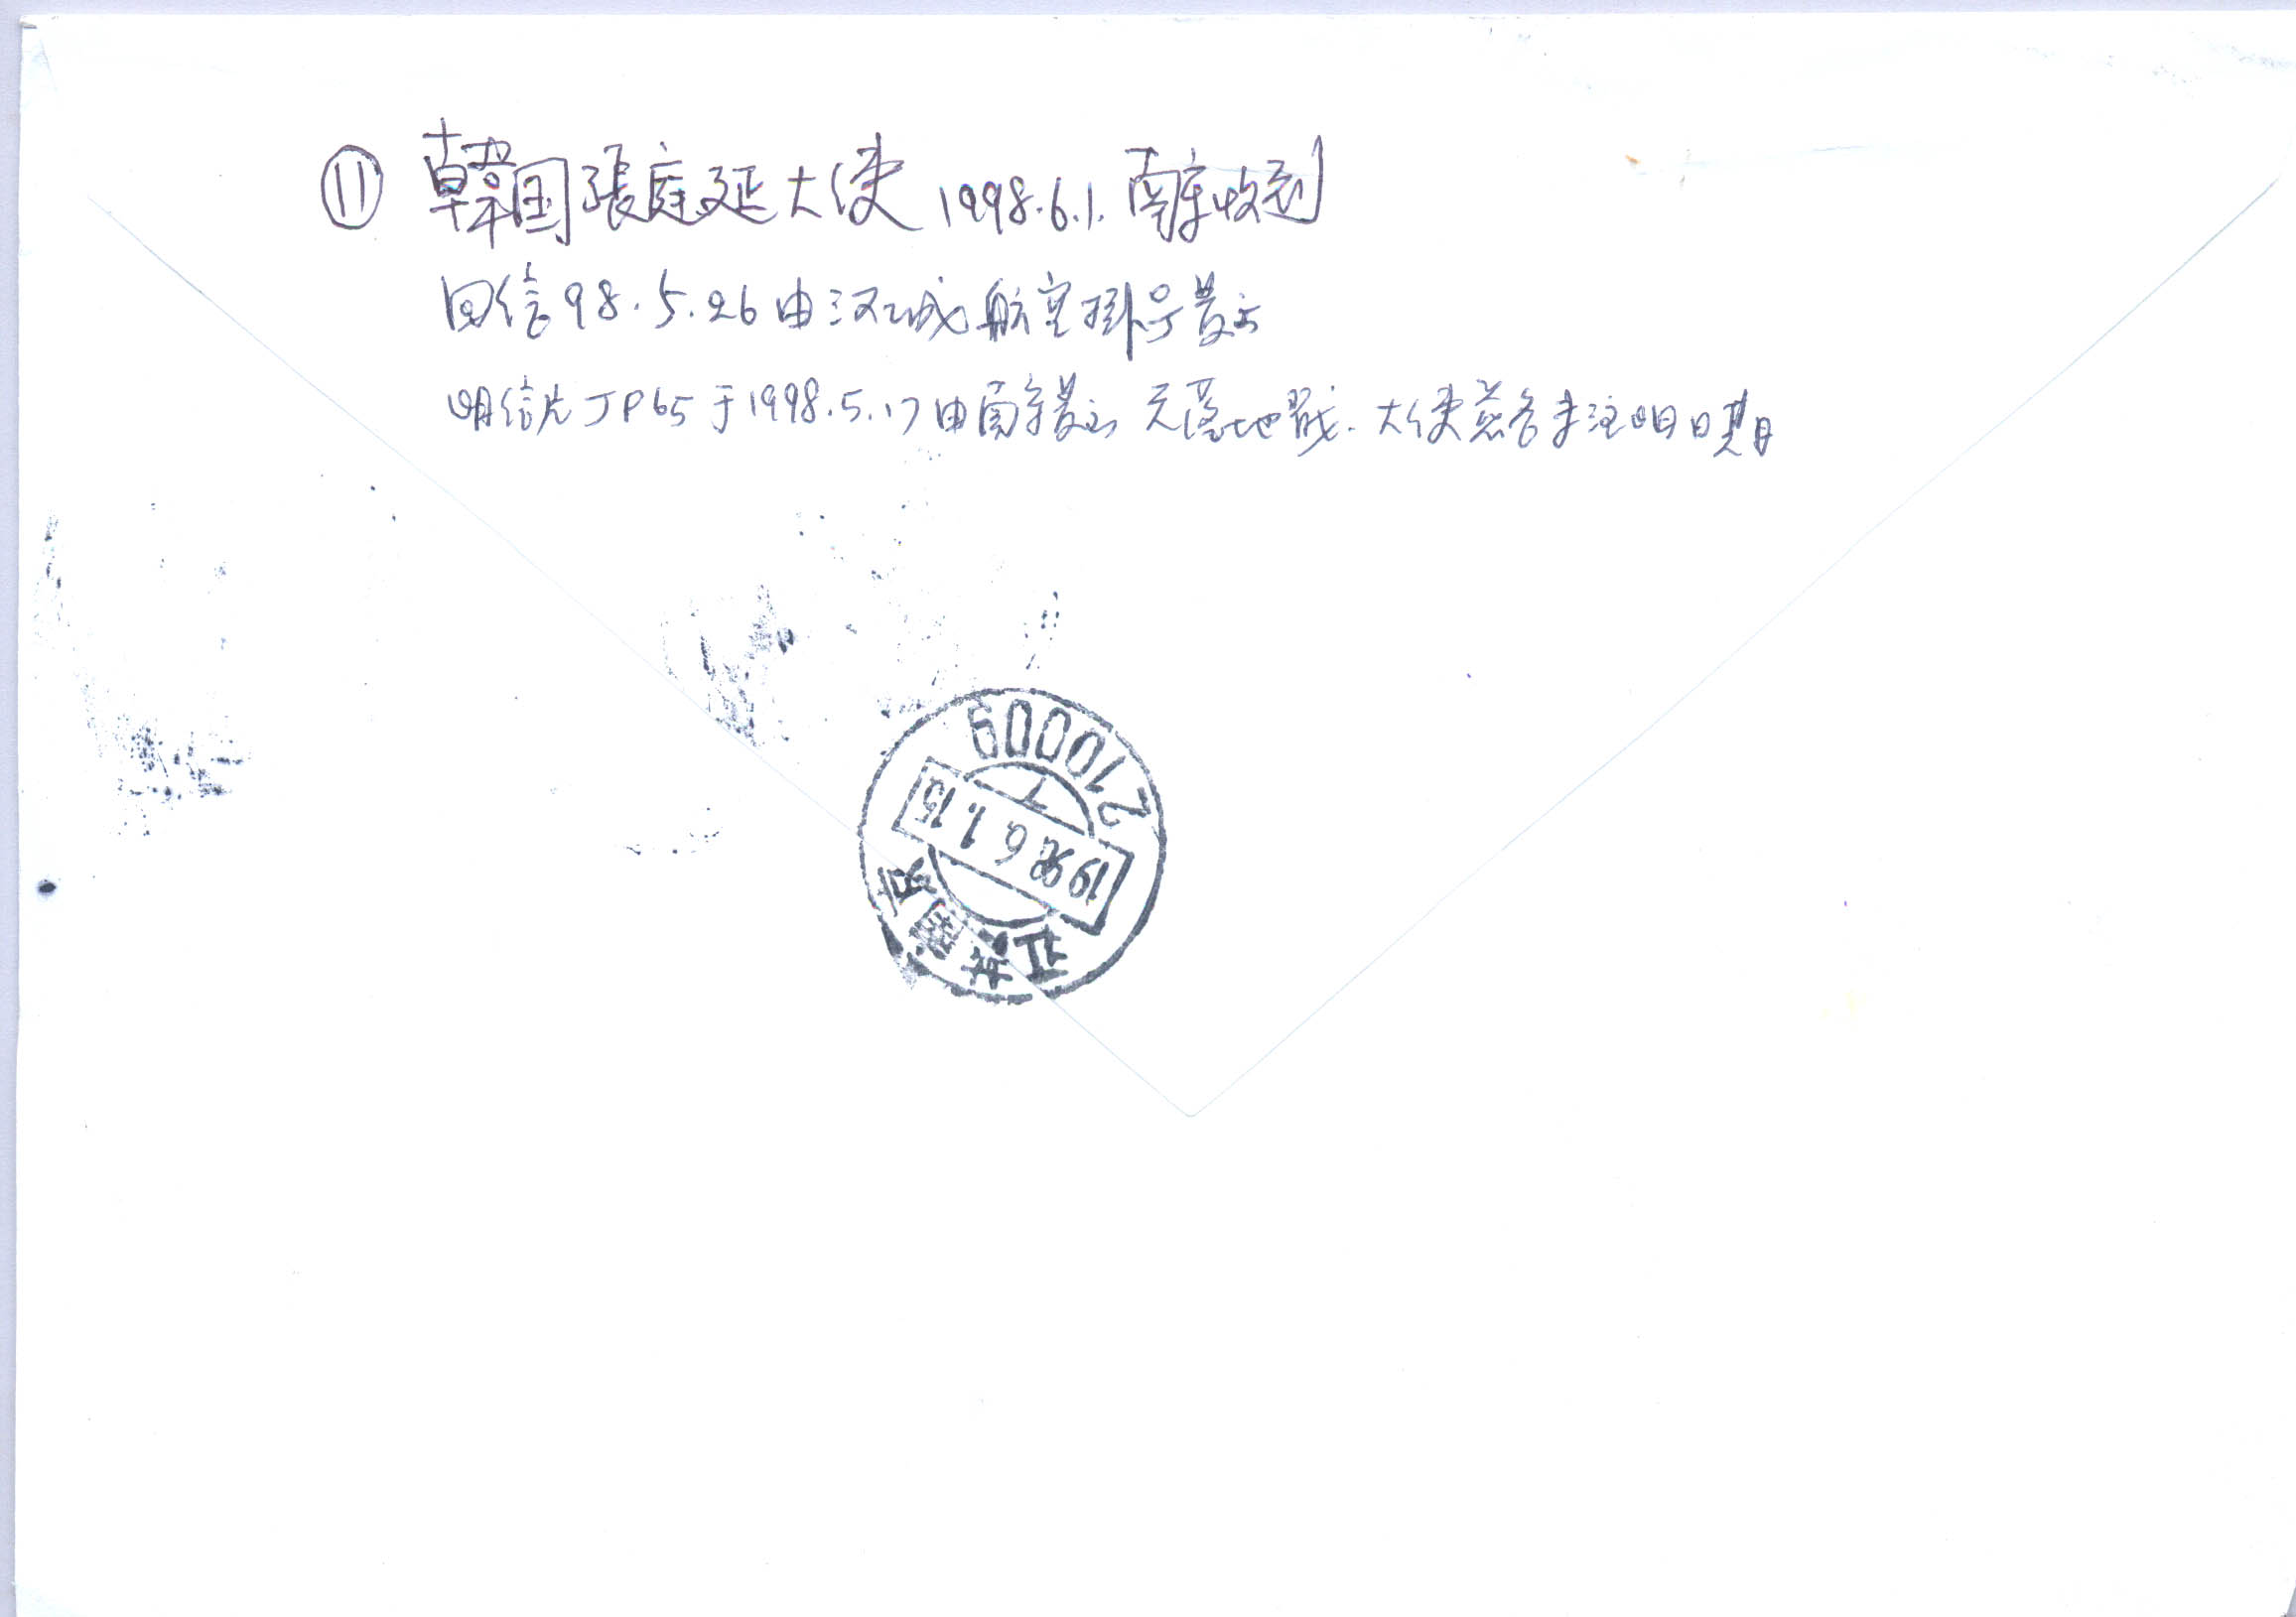 ⑪ 韓国張庭延大使 1998.6.1. 南京收到
回信98.5.26由汉城航空掛号发出
明信片JP65于1998.5.17由南京发出 无落地戳.大使签名未注明日期
210009
1998.6.1.15
江苏南京